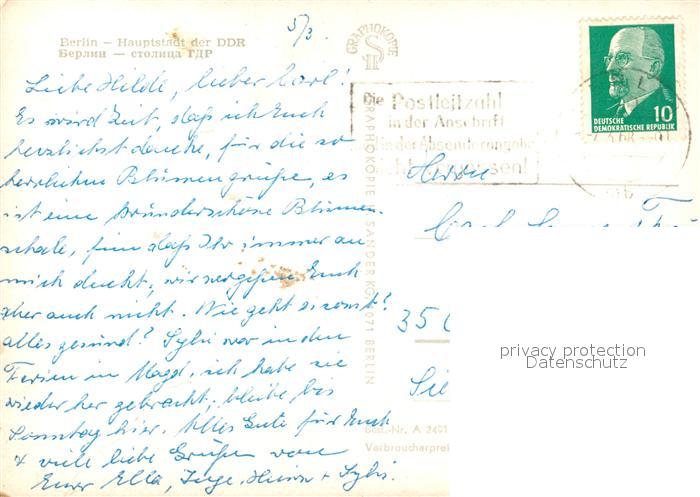 5/3.
Berlin – Hauptstadt der DDR
Берлин — столица ГДР
Liebe Hilde, lieber Karl!
Es wird Zeit, daß ich Euch
herzlichst danke, für die so
herzlichen Blumengrüße, es
ist eine wunderschöne Blumen-
schale, fein daß Ihr immer an
mich denkt, wir vergessen Euch
aber auch nicht. Wie geht es sonst?
alles gesund? Sylvi war in den
Ferien in Magd. ich habe sie
wieder her gebracht, bleibe bis
Sonntag hier. Alles Gute für Euch
+ viele liebe Grüße von
Eurer Ella, Inge, Heinz + Sylvi.
GRAPHOKOPIE
GRAPHOKOPIE H. SANDER KG, 1071 BERLIN
Die Postleitzahl
in der Anschrift
in der Absenderangabe
DEUTSCHE
DEMOKRATISCHE REPUBLIK
10
Herrn
35
privacy protection
Datenschutz
Best.-Nr. A 2401
Verbraucherprei